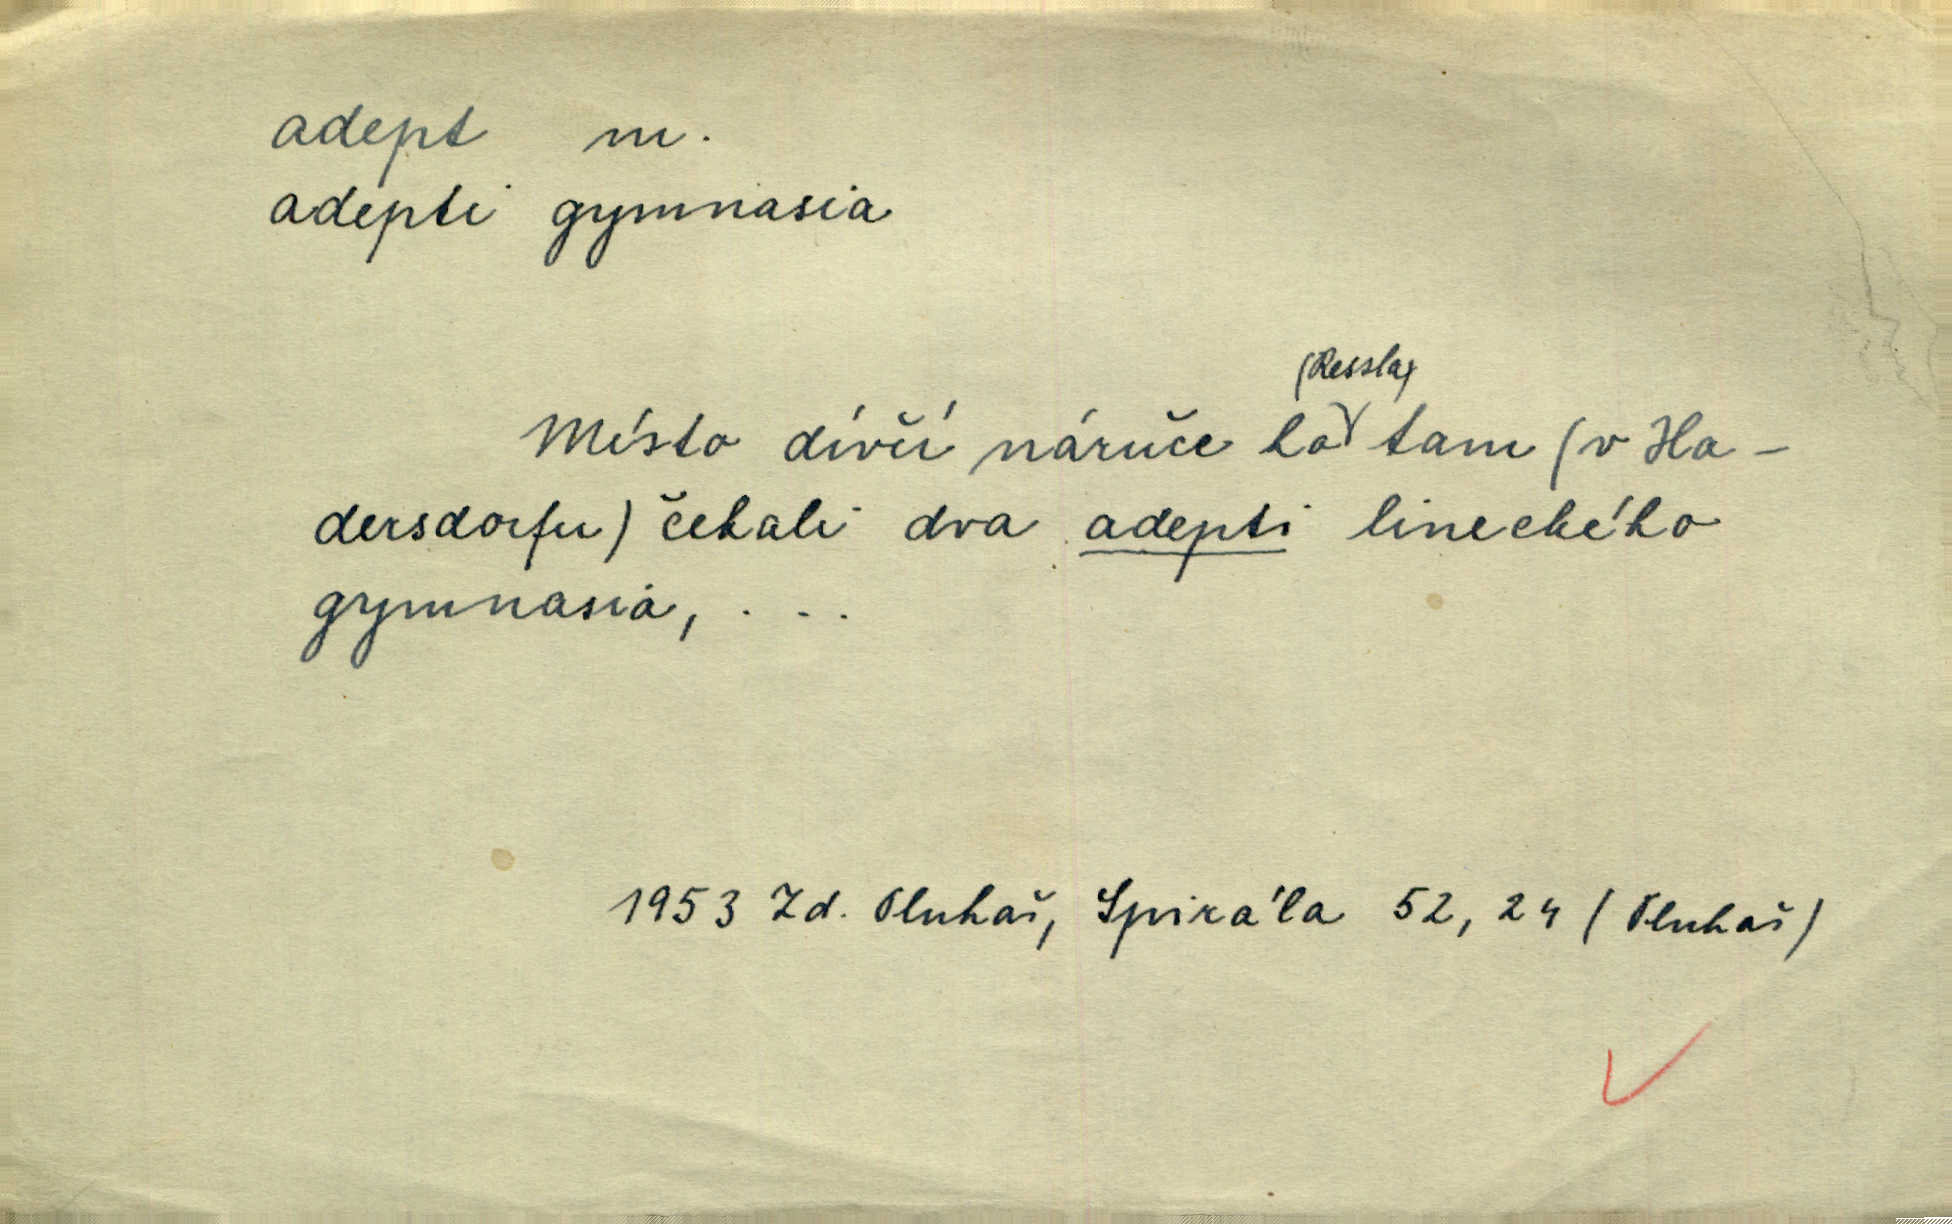 adept m.
adepti gymnasia
(Ressla)
Místo dívčí náruče ho tam (v Ha-
dersdorfu) čekali dva adepti lineckého
gymnasia, ...
1953 Zd. Pluhař, Spirála 52, 24 (Pluhař)